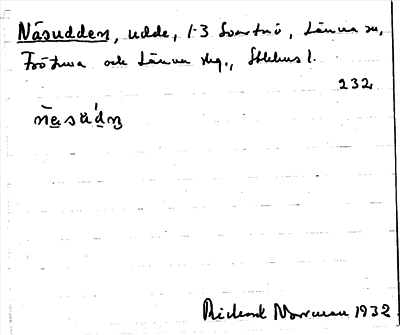 Näsudden, udde, 1-3 Svartnö, Länna sn,
Frötuna och Länna skg., Sthlms l.
232
næsud̀n̥
Rickard Norrman 1932